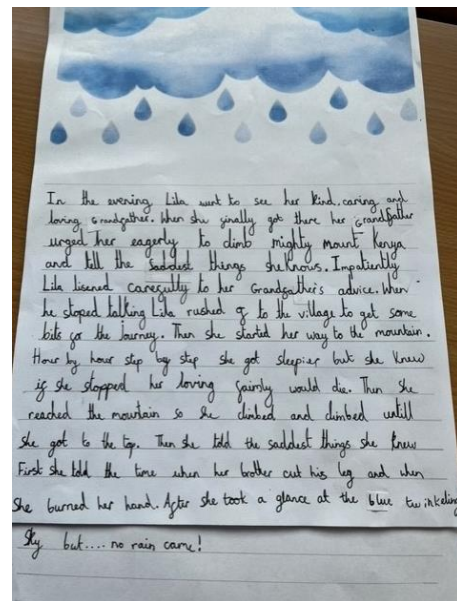 In the evening Lila went to see her kind, caring and
loving grandfather. When she finally got there her grandfather
urged her eagerly to climb mighty mount Kenya
and tell the saddest things she knows. Impatiently
Lila lisened carefully to her Grandfather's advice. When
he stoped talking Lila rushed of to the village to get some
bits for the journey. Then she started her way to the mountain.
Hour by hour step by step she got sleepier but she knew
if she stopped her loving faimly would die. Then she
reached the mountain so she climbed and climbed untill
she got to the top. Then she told the saddest things she knew
First she told the time when her brother cut his leg and when
She burned her hand. After she took a glance at the blue twinkeling
Sky but.... no rain came!